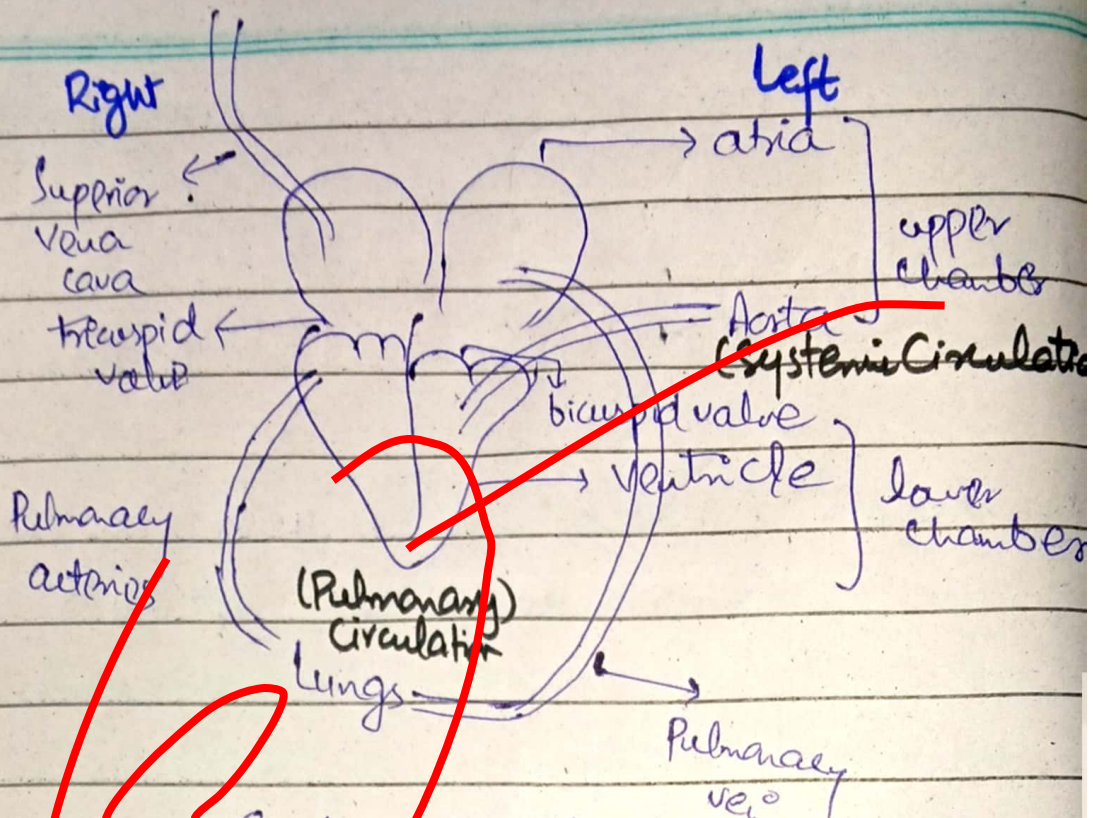 Right
Left
atria
Superior
vena
cava
upper
chamber
tricuspid
valve
Aorta
(Systemic Circulatio
bicuspid valve
ventricle
lower
chamber
Pulmonary
arteries
(Pulmonary)
Circulation
Lungs
Pulmonary